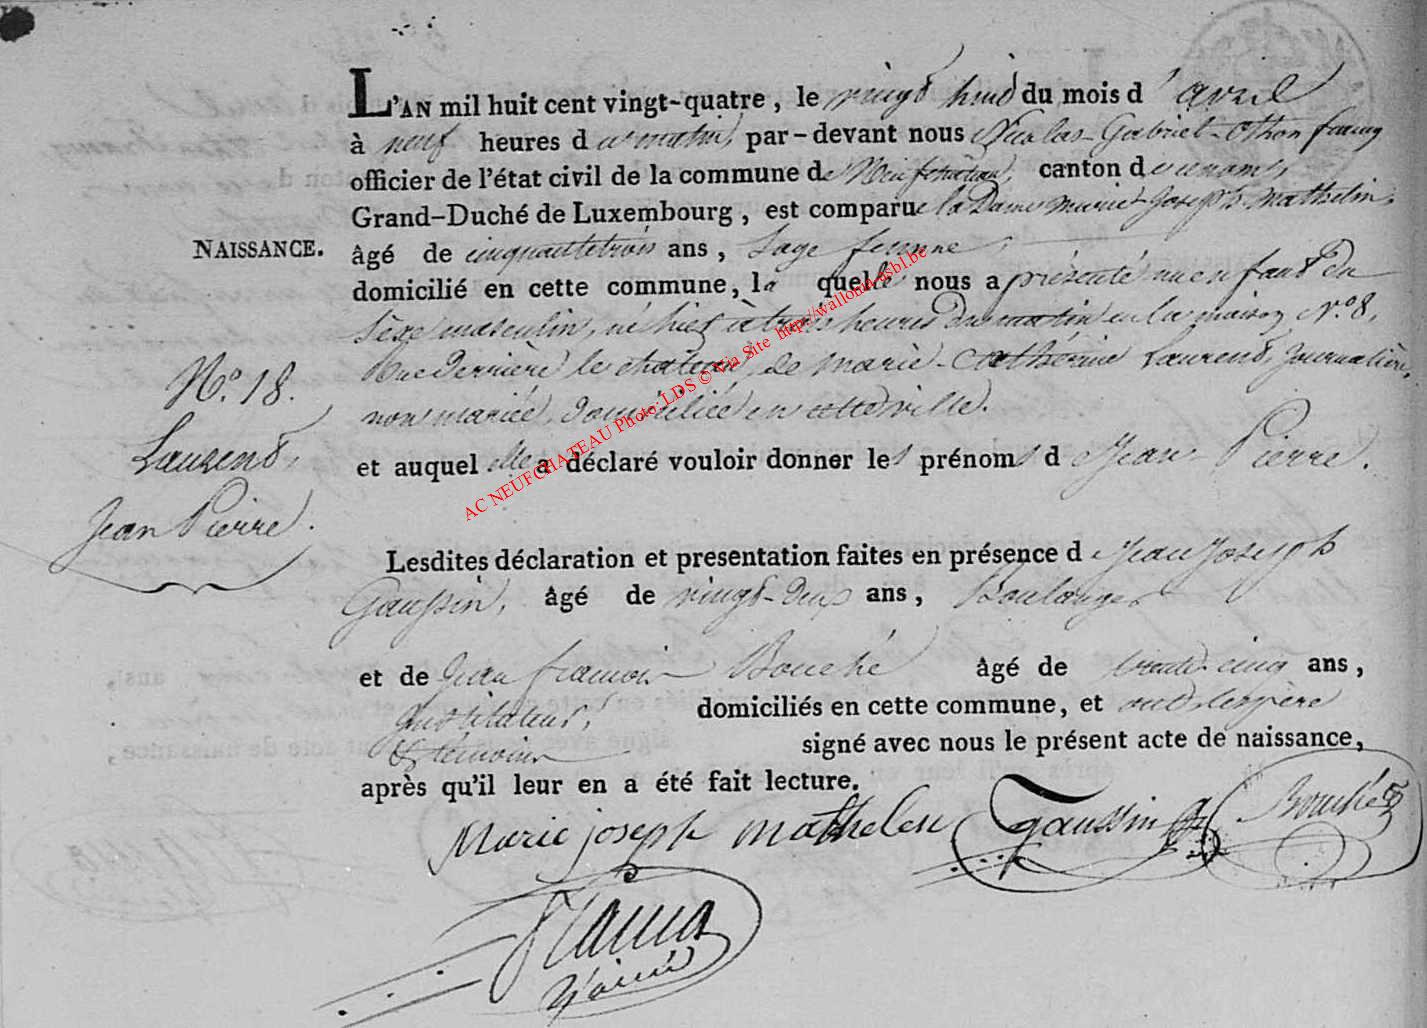 L'AN mil huit cent vingt-quatre, le vingt huit du mois d'avril
à neuf heures du matin, par-devant nous Nicolas-Gabriel-Othon
officier de l'état civil de la commune de Neufchâteau, canton du même nom,
Grand-Duché de Luxembourg, est comparue la Dame marie Joseph mathelin,
NAISSANCE.
âgé de cinquantetrois ans, Sage femme,
domicilié en cette commune, la quelle nous a présenté un enfant du
Sexe masculin, né hier à trois heures du matin en la maison N.º 8,
Rue Derrière le chateau, de marie-Cathérine Laurent, Journalière,
non mariée, domiciliée en cette ville.
N.º 18.
Laurent,
Jean Pierre.
et auquel elle a déclaré vouloir donner les prénoms de Jean Pierre.
Lesdites déclaration et presentation faites en présence de Jean Joseph
Gaussin, âgé de vingt-deux ans, Boulanger
et de Jean françois Bouché âgé de trente-cinq ans,
Instituteur, domiciliés en cette commune, et ont
& témoins signé avec nous le présent acte de naissance,
après qu'il leur en a été fait lecture.
Marie joseph mathelin gaussin Bouché
AC NEUFCHATEAU Photo: LDS © Via Site http://wallonia-asbl.be